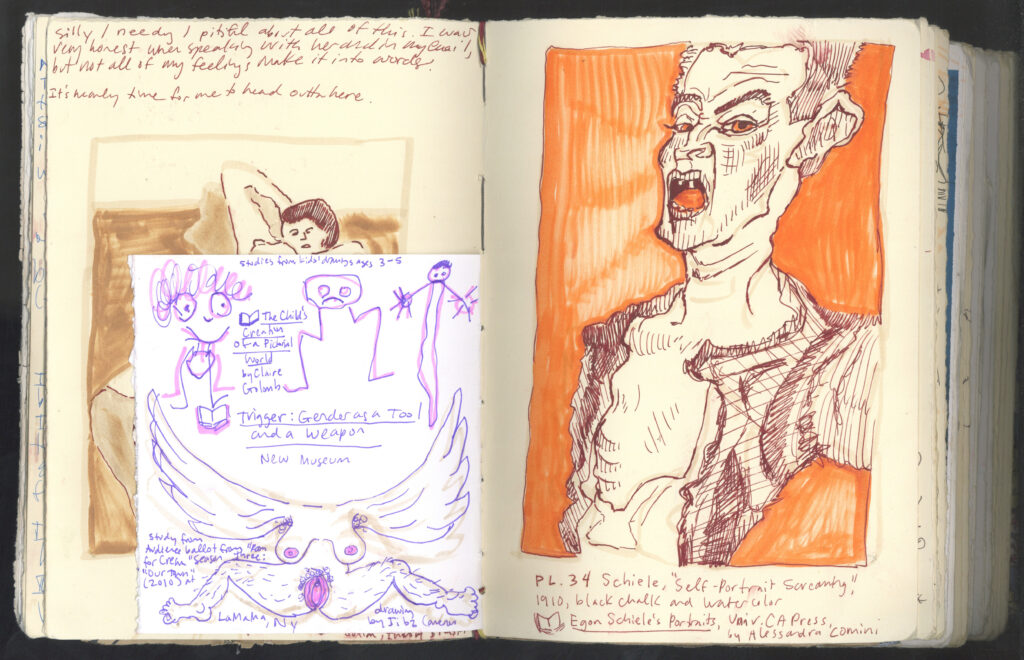 silly / needy / pitiful about all of this. I was
very honest when speaking with her and in my email,
but not all of my feelings make it into words.
It's nearly time for me to head outta here.
studies from kids' drawings ages 3-5
The Child's
Creation
of a Pictorial
World
by Claire
Golomb
Trigger: Gender as a Tool
and a Weapon
New Museum
study from
audience ballot from
for Crehn "Season Three:
"Our Town"
(2010) at
LaMaMa, NY
drawing
by Jibz Cameron
PL. 34 Schiele, "Self-Portrait Screaming",
1910, black chalk and watercolor
Egon Schiele's Portraits, Univ. CA Press,
by Alessandra Comini